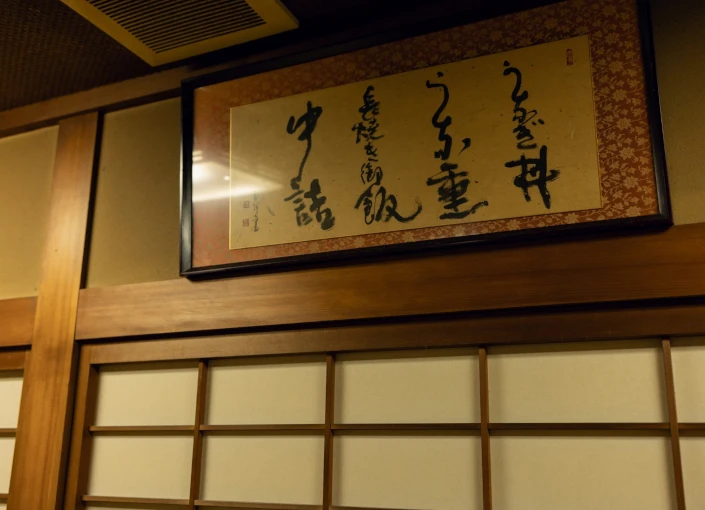 うなぎ丼
うな重
長焼き御飯
中詰